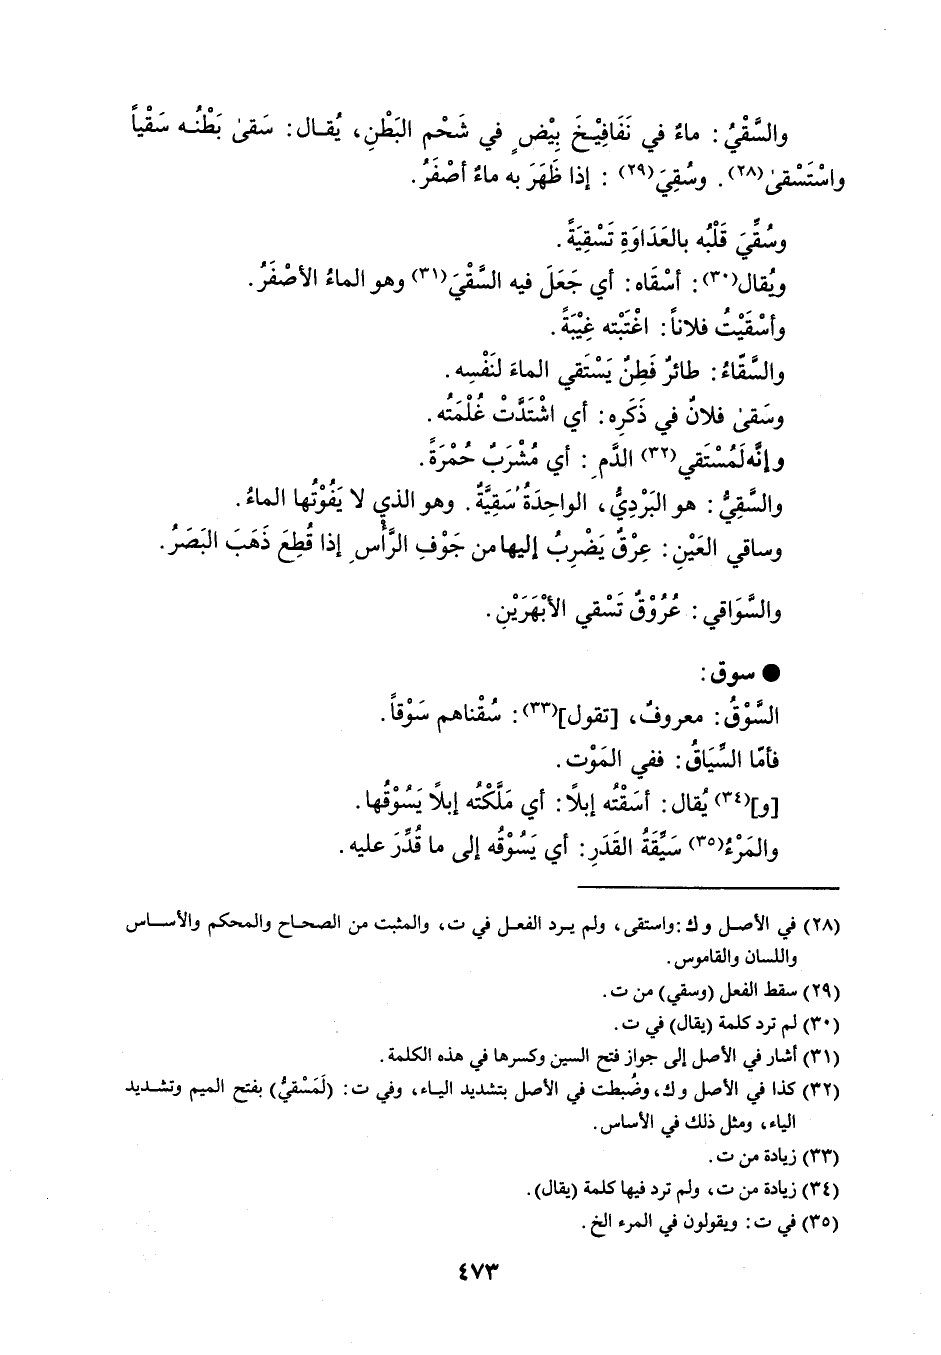 والسَّقْيُ: ماءٌ في نَفَافِيْخَ بِيْضٍ في شَحْم البَطْنِ، يُقـال: سَقىٰ بَطْنُـه سَقْياً
واسْتَسْقىٰ(٢٨). وسُقِيَ(٢٩) : إذا ظَهَرَ به ماءٌ أصْفَرُ.
وسُقِّيَ قَلْبُه بالعَدَاوَةِ تَسْقِيَةً.
ويُقال(٣٠): أسْقَاه: أي جَعَلَ فيه السَّقْيَ(٣١) وهو الماءُ الأصْفَرُ.
وأسْقَيْتُ فلاناً: اغْتَبْته غِيْبَةً.
والسَّقّاءُ: طائرٌ فَطِنٌ يَسْتَقي الماءَ لنَفْسِه.
وسَقىٰ فلانٌ في ذَكَرِه: أي اشْتَدَّتْ غُلْمَتُه.
وإنَّه لَمُسْتَقي(٣٢) الدَّمِ: أي مُشْرَبٌ حُمْرَةً.
والسَّقِيُّ: هو البَرْدِيُّ، الواحِدَةُ سَقِيَّةٌ. وهو الذي لا يَفُوْتُها الماءُ.
وساقي العَيْنِ: عِرْقٌ يَضْرِبُ إليها من جَوْفِ الرَّأْسِ إذا قُطِعَ ذَهَبَ البَصَرُ.
والسَّوَاقي: عُرُوْقٌ تَسْقي الأبْهَرَيْنِ.
● سوق:
السَّوْقُ: معروفٌ، [تقول](٣٣): سُقْناهم سَوْقاً.
فأمّا السِّيَاقُ: ففي المَوْت.
[و](٣٤) يُقال: أسَقْتُه إبلًا: أي مَلَّكْتُه إبلًا يَسُوْقُها.
والمَرْءُ(٣٥) سَيِّقَةُ القَدَرِ: أي يَسُوْقُه إلى ما قُدِّرَ عليه.
(٢٨) في الأصـل و ك: واستقى، ولم يـرد الفعـل في ت، والمثبت من الصحـاح والمحكم والأسـاس
واللسان والقاموس.
(٢٩) سقط الفعل (وسقي) من ت.
(٣٠) لم ترد كلمة (يقال) في ت.
(٣١) أشار في الأصل إلى جواز فتح السين وكسرها في هذه الكلمة.
(٣٢) كذا في الأصل و ك، وضُبطت في الأصل بتشديد اليـاء، وفي ت: (لَمَسْقيُّ) بفتح الميم وتشـديد
الياء، ومثل ذلك في الأساس.
(٣٣) زيادة من ت.
(٣٤) زيادة من ت، ولم ترد فيها كلمة (يقال).
(٣٥) في ت: ويقولون في المرء الخ.
٤٧٣